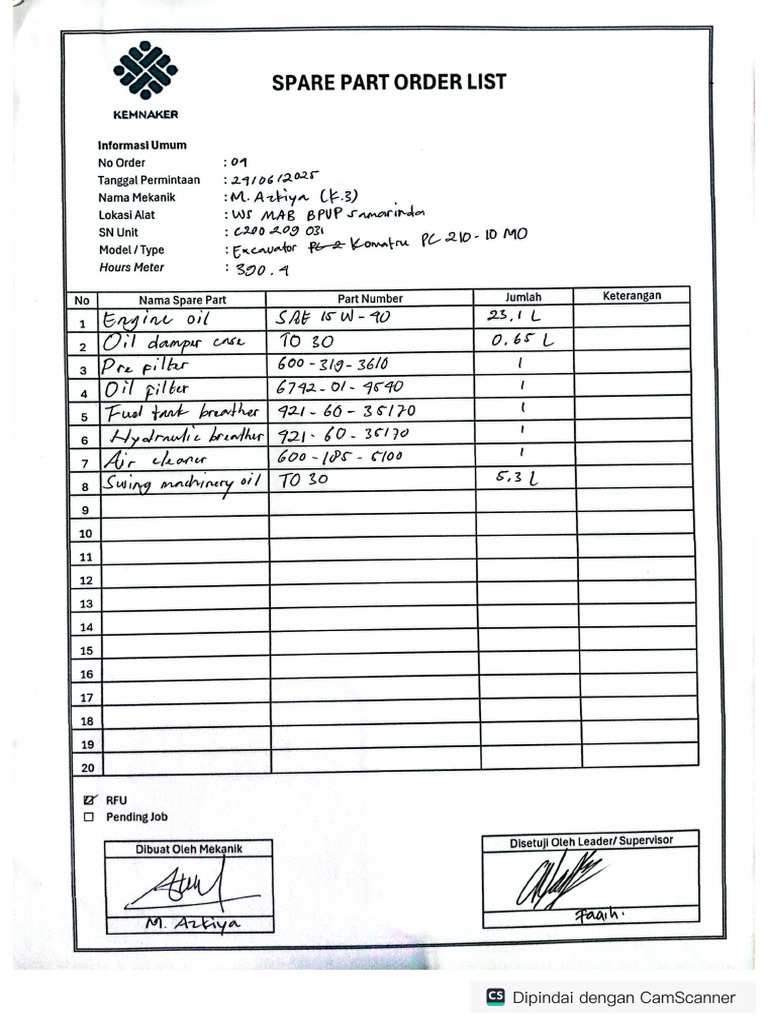 KEMNAKER
SPARE PART ORDER LIST
Informasi Umum
No Order : 01
Tanggal Permintaan : 24/06/2025
Nama Mekanik : M. Azkiya (K.3)
Lokasi Alat : WS MAB BPVP Samarinda
SN Unit : C200 209 031
Model / Type : Excavator Komatsu PC 210-10 MO
Hours Meter : 390.4
No Nama Spare Part Part Number Jumlah Keterangan
1 Engine oil SAE 15 W-40 23,1 L
2 Oil damper case TO 30 0,65 L
3 Pre filter 600-319-3610 1
4 Oil filter 6742-01-4540 1
5 Fuel tank breather 421-60-35170 1
6 Hydraulic breather 421-60-35170 1
7 Air cleaner 600-185-5100 1
8 Swing machinery oil TO 30 5,3 L
9
10
11
12
13
14
15
16
17
18
19
20
RFU
Pending Job
Dibuat Oleh Mekanik
M. Azkiya
Disetuji Oleh Leader/ Supervisor
Faqih.
CS Dipindai dengan CamScanner